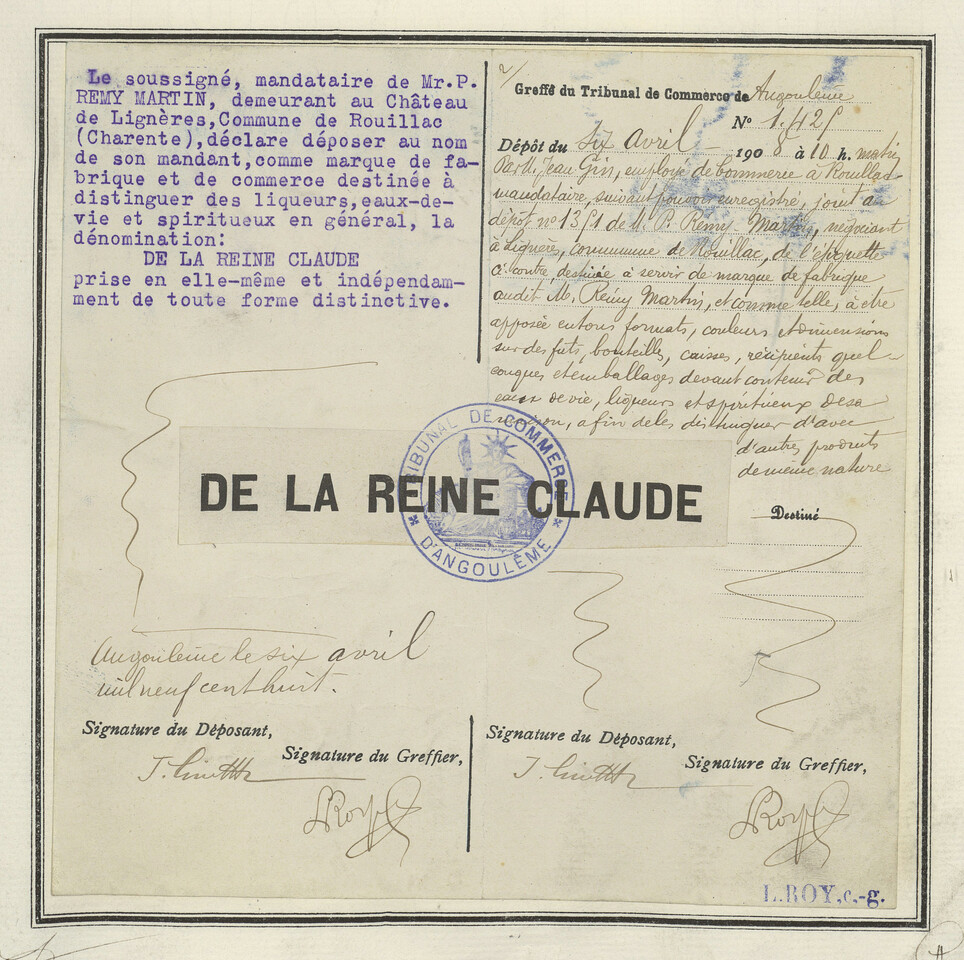 Le soussigné, mandataire de Mr.P.
REMY MARTIN, demeurant au Château
de Lignères,Commune de Rouillac
(Charente),déclare déposer au nom
de son mandant,comme marque de fa-
brique et de commerce destinée à
distinguer des liqueurs,eaux-de-
vie et spiritueux en général, la
dénomination:
DE LA REINE CLAUDE
prise en elle-même et indépendam-
ment de toute forme distinctive.
Angoulême le six avril
mil neuf cent huit.
Signature du Déposant,
Signature du Greffier,
Greffe du Tribunal de Commerce de Angoulême
N° 1.425
Dépôt du Six Avril 1908 à 10 h. matin
Par M. Jean Gin, employé de commerce à Rouillac
mandataire, suivant pouvoir enregistré, joint au
dépôt n° 1351 de M. P. Remy-Martin, négociant
à Lignère, commune de Rouillac, de l'étiquette
ci contre, destinée à servir de marque de fabrique
audit M. Remy Martin, et comme telle, à être
apposée en tous formats, couleurs et dimensions
sur des futs, bouteilles, caisses, récipients quel-
conques et emballages devant contenir des
eaux de vie, liqueurs et spiritueux de sa
maison, afin de les distinguer d'avec
d'autres produits
de même nature
DE LA REINE CLAUDE
TRIBUNAL DE COMMERCE
D'ANGOULÊME
Destiné
Signature du Déposant,
Signature du Greffier,
L.ROY,c.-g.